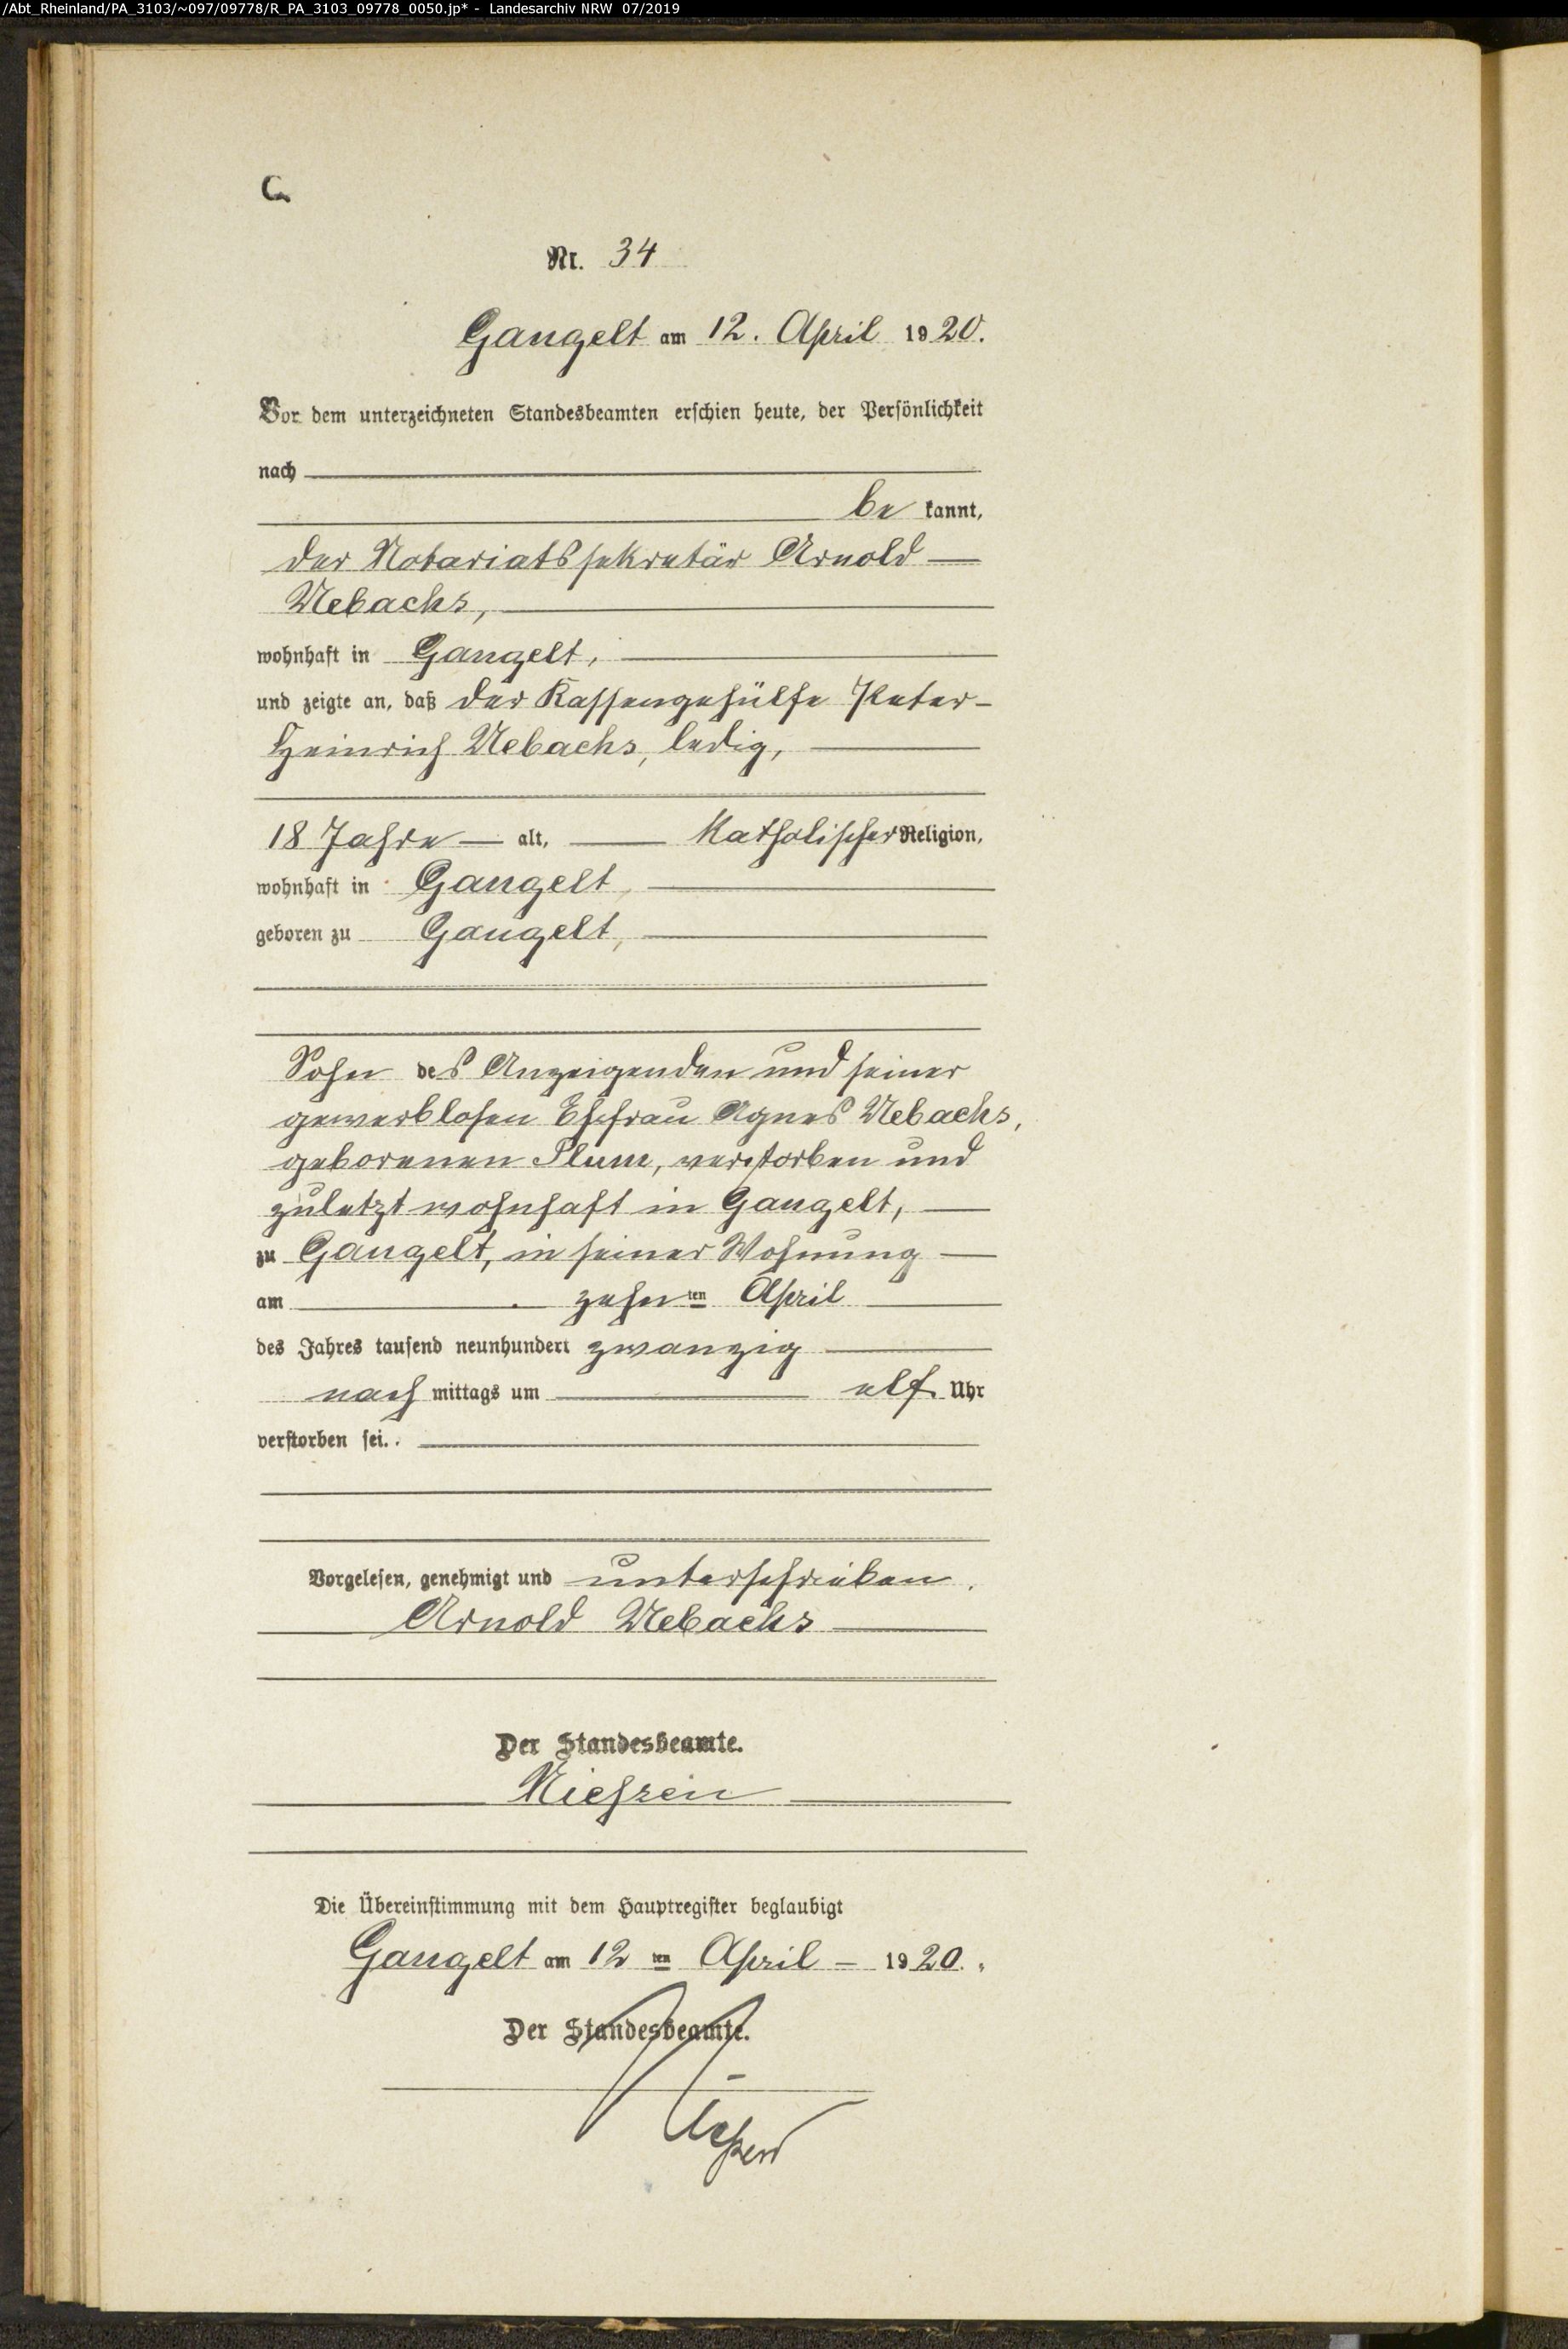 /Abt_Rheinland/PA_3103/~097/09778/R_PA_3103_09778_0050.jp* - Landesarchiv NRW 07/2019
C.
Nr. 34
Gangelt am 12. April 1920.
Vor dem unterzeichneten Standesbeamten erschien heute, der Persönlichkeit
nach
be kannt,
der Notariatssekretär Arnold
Uebachs,
wohnhaft in Gangelt,
und zeigte an, daß der Kassengehülfe Peter-
Heinrich Uebachs, ledig,
18 Jahre alt, katholischer Religion,
wohnhaft in Gangelt,
geboren zu Gangelt,
Sohn des Anzeigenden und seiner
gewerblosen Ehefrau Agnes Uebachs,
geborenen Plum, verstorben und
zuletzt wohnhaft in Gangelt,
zu Gangelt, in seiner Wohnung
am zehnten April
des Jahres tausend neunhundert zwanzig
nach mittags um elf Uhr
verstorben sei.
Vorgelesen, genehmigt und unterschrieben.
Arnold Uebachs
Der Standesbeamte.
Nießen
Die Übereinstimmung mit dem Hauptregister beglaubigt
Gangelt am 12 ten April 1920.
Der Standesbeamte.